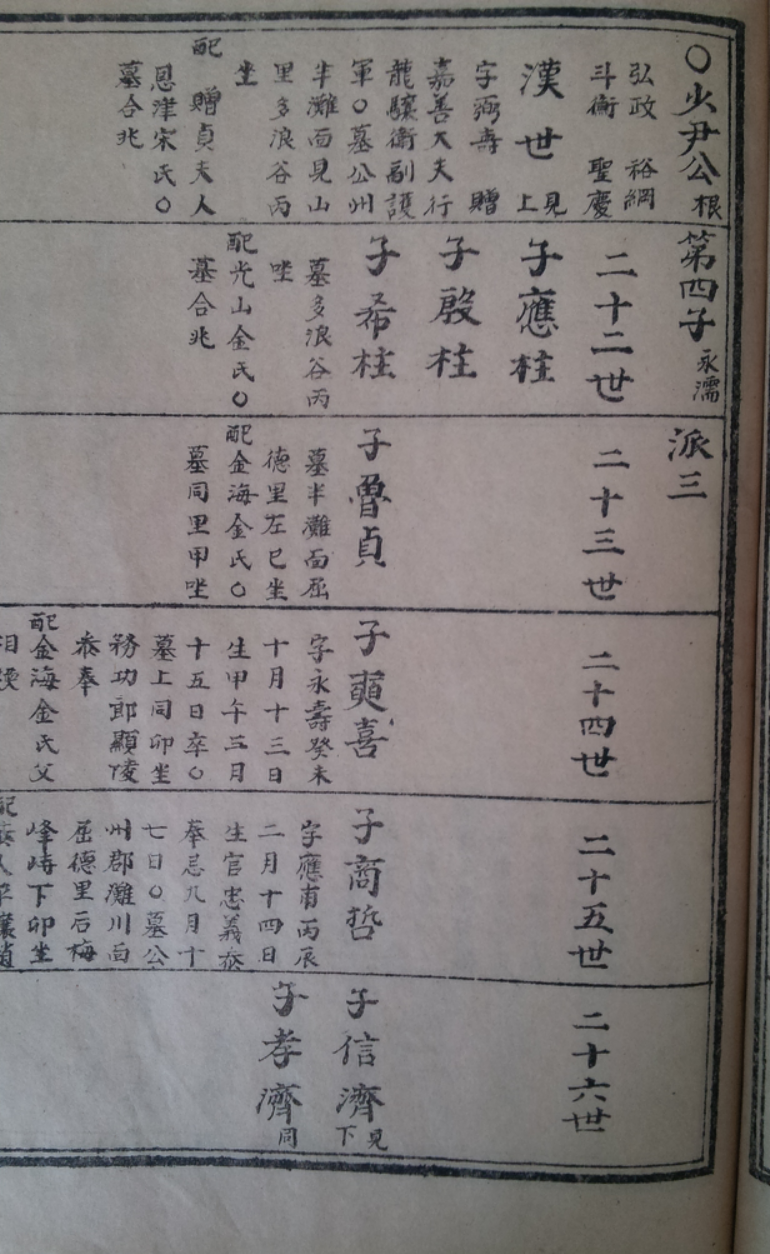 〇少尹公根
第四子永濡
派三
弘政 裕綱
斗衡 聖慶
漢世見上
字弼壽 贈
嘉善大夫行
龍驤衛副護
軍〇墓公州
半灘面見山
里多浪谷丙
坐
配 贈貞夫人
恩津宋氏〇
墓合兆
二十二世
子應柱
子殷柱
子希柱
墓多浪谷丙
坐
配光山金氏〇
墓合兆
二十三世
子魯貞
墓半灘面屈
德里左巳坐
配金海金氏〇
墓同里甲坐
二十四世
子奭喜
字永壽癸未
十月十三日
生甲午三月
十五日卒〇
墓上同卯坐
務功郎顯陵
叅奉
配金海金氏父
二十五世
子商哲
字應甫丙辰
二月十四日
生官忠義叅
奉忌九月十
七日〇墓公
州郡灘川面
屈德里后梅
峰峙下卯坐
二十六世
子信濟見下
子孝濟同